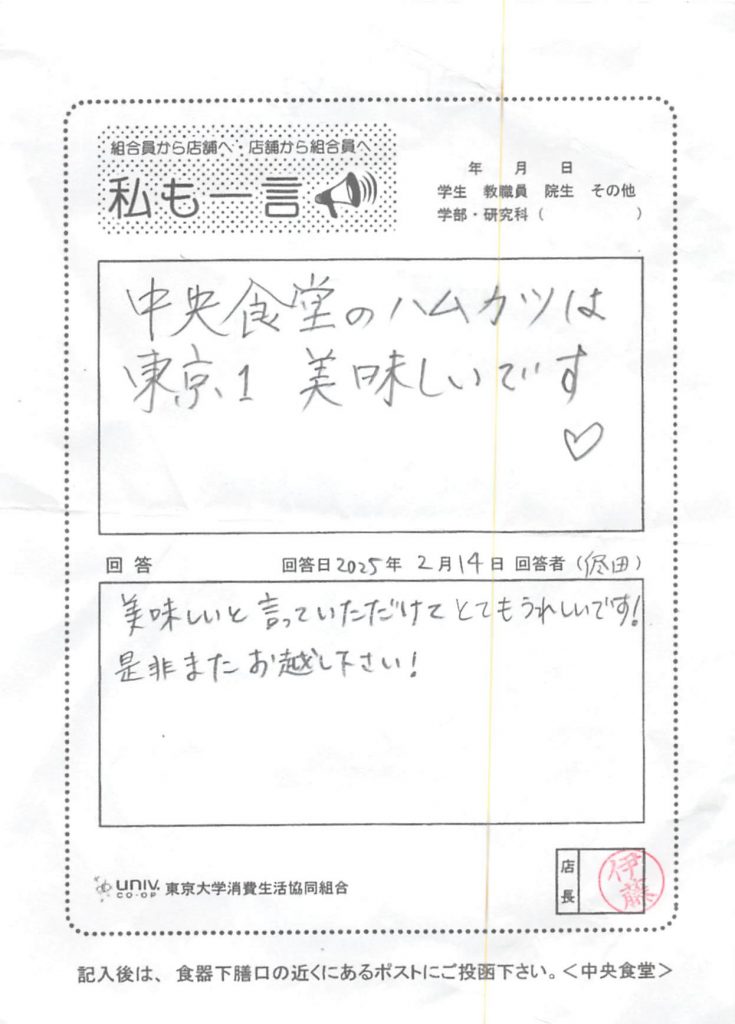 組合員から店舗へ・店舗から組合員へ
私も一言
年 月 日
学生 教職員 院生 その他
学部・研究科（ ）
中央食堂のハムカツは
東京1 美味しいです
♡
回答 回答日2025年 2月14日 回答者（ 田）
美味しいと言っていただけてとてもうれしいです!
是非またお越し下さい!
店長
伊藤
UNIV. CO-OP 東京大学消費生活協同組合
記入後は、食器下膳口の近くにあるポストにご投函下さい。＜中央食堂＞